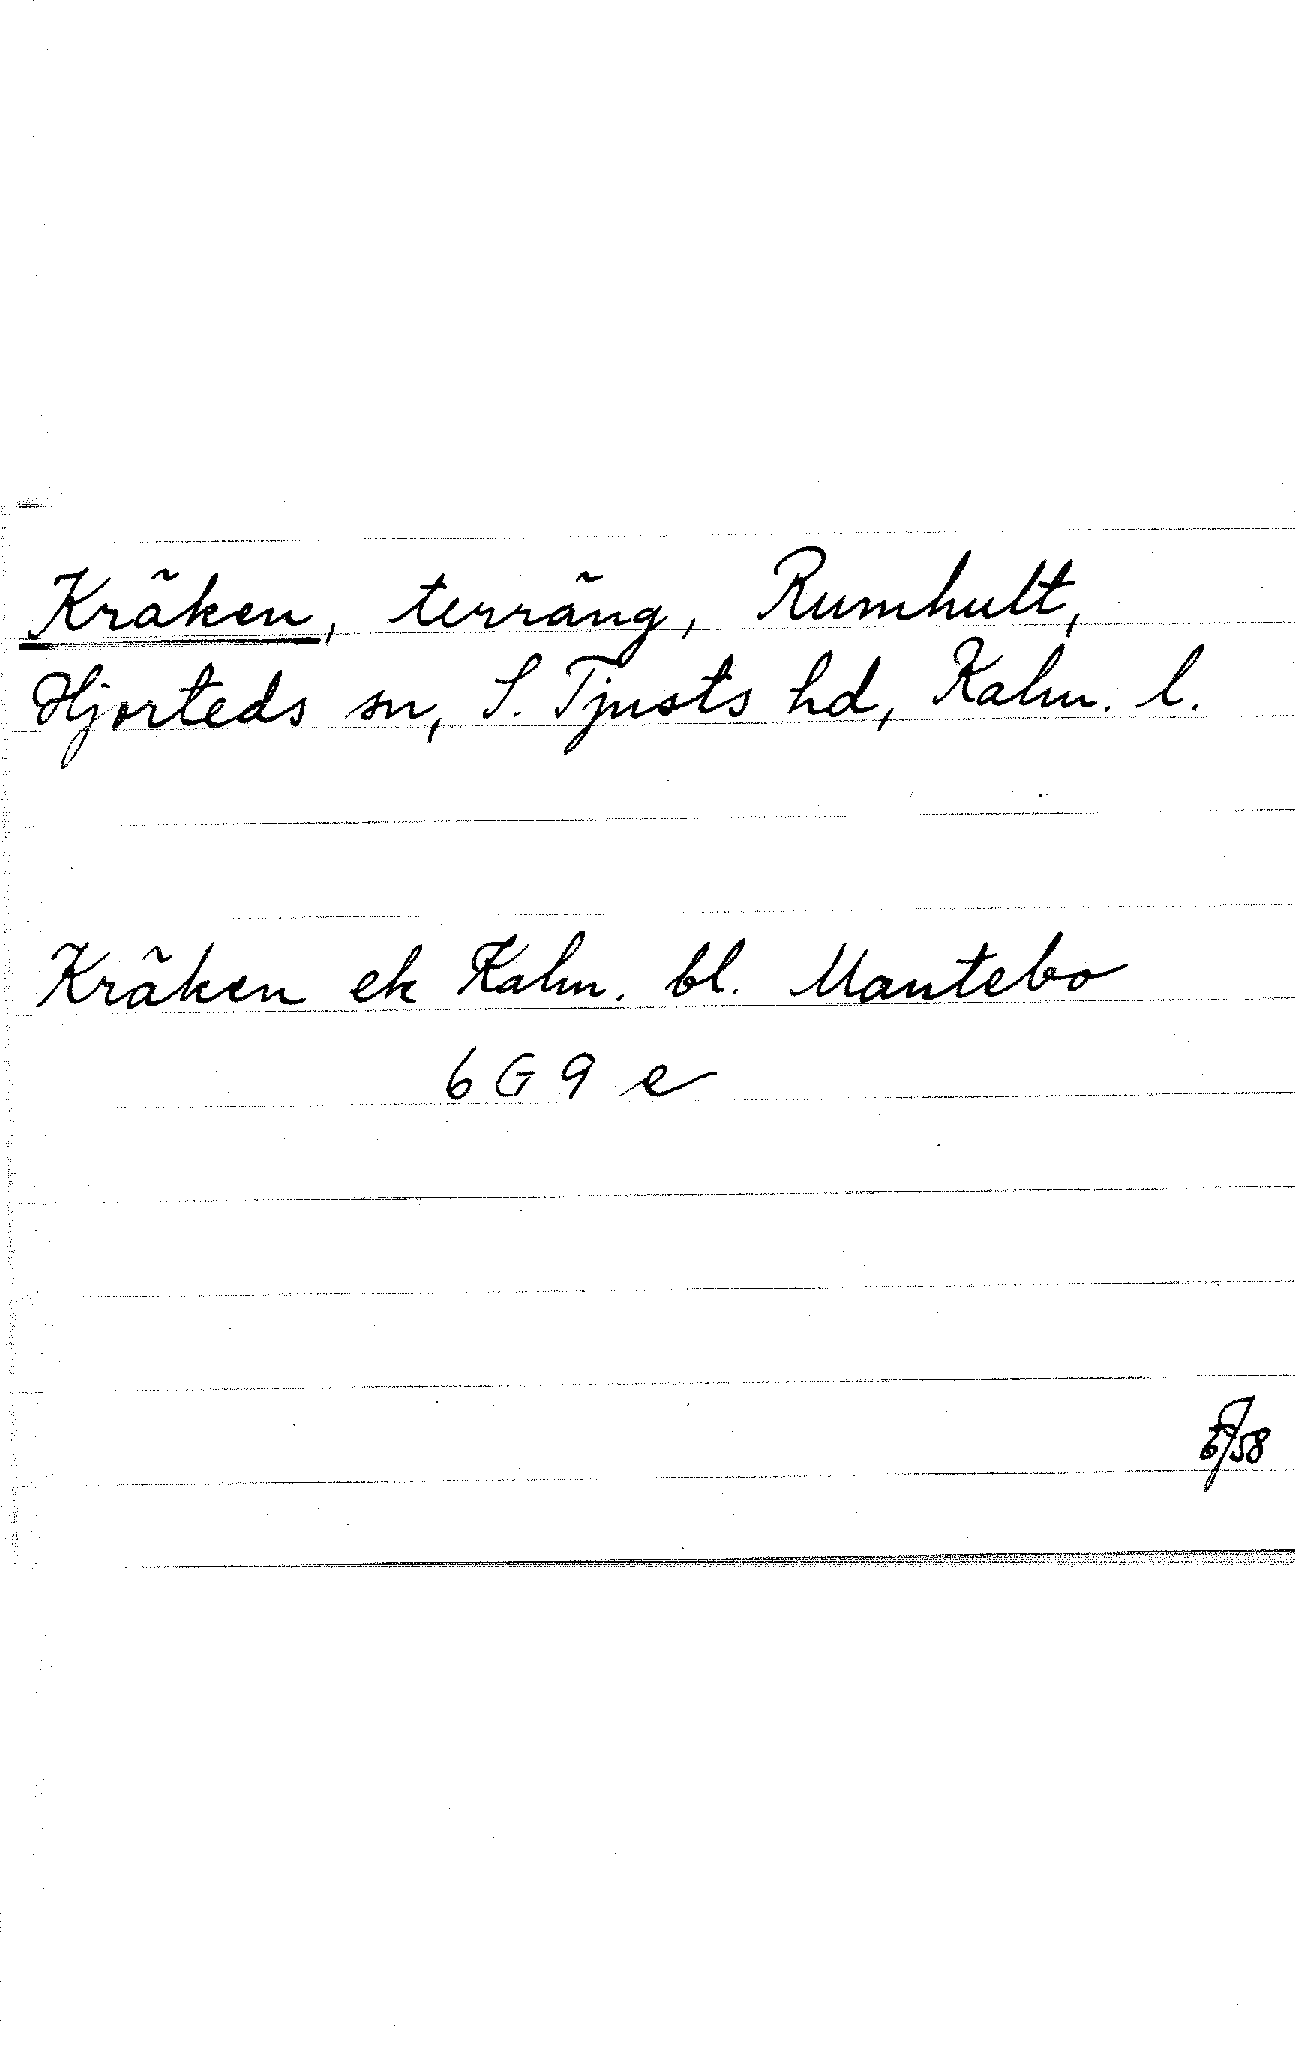 Kräken, terräng, Rumhult,
Hjorteds sn, S. Tjusts hd, Kalm. l.
Kräken ek Kalm. bl. Mantebo
6 G 9 e